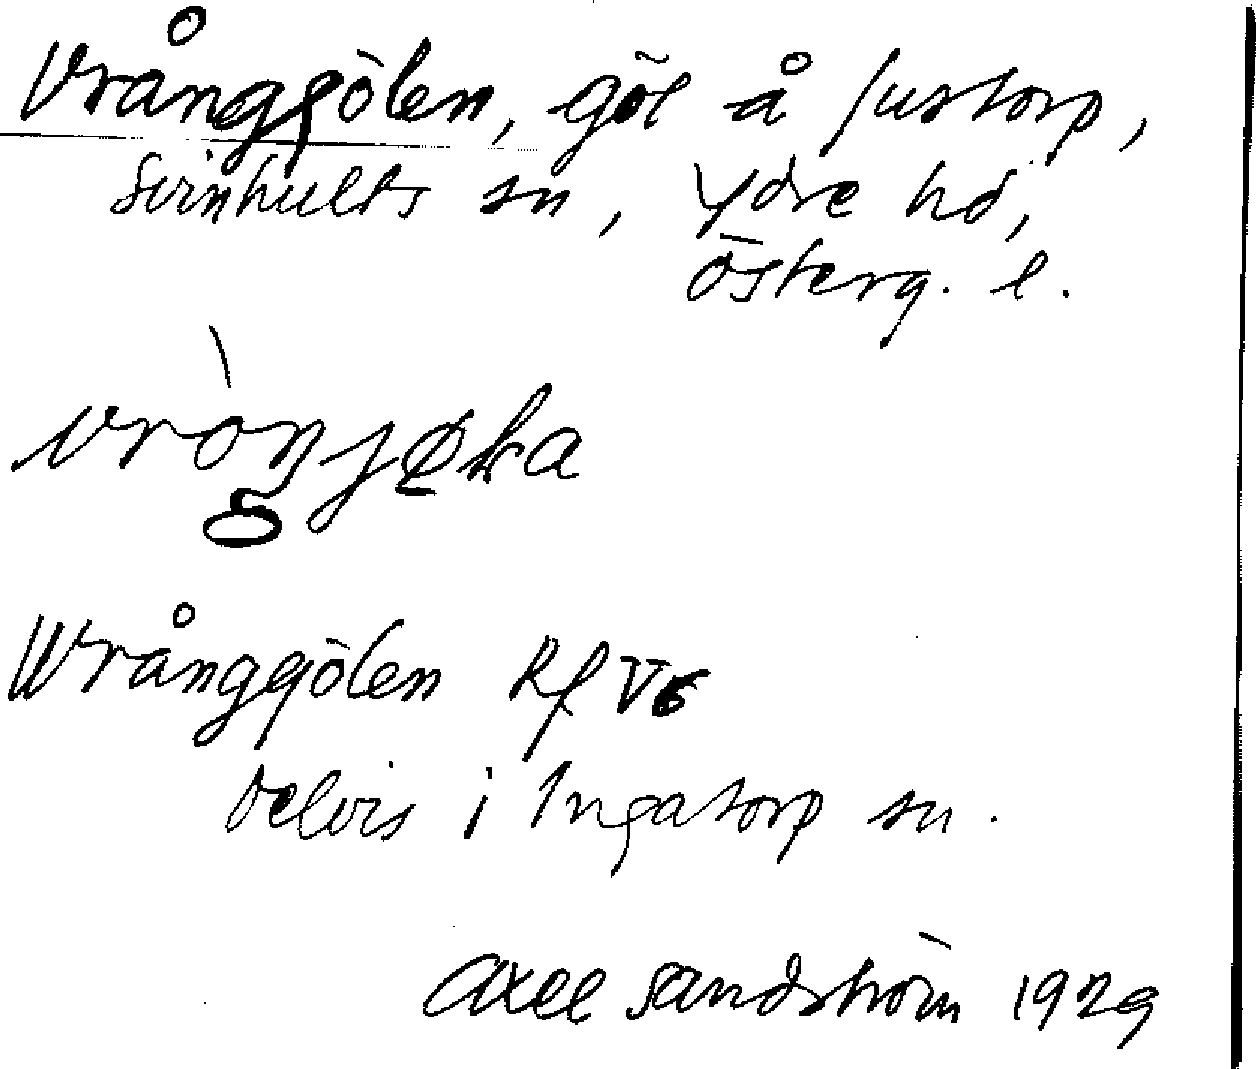 Vrånggölen, göl å Justorp,
Svinhults sn, Ydre hd,
Österg. l.
Wrånggölen Rf V6
delvis i Ingatorp sn.
Axel Sandström 1929